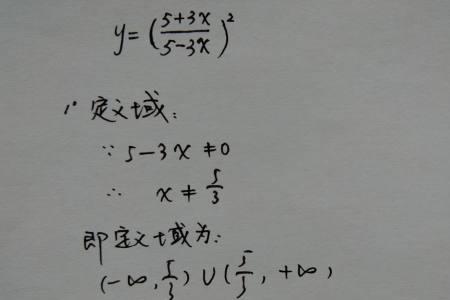 y=(\frac{5+3x}{5-3x})^2
1° 定义域:
∵ 5-3x≠0
∴ x≠\frac{5}{3}
即定义域为:
(-∞,\frac{5}{3})∪(\frac{5}{3},+∞)